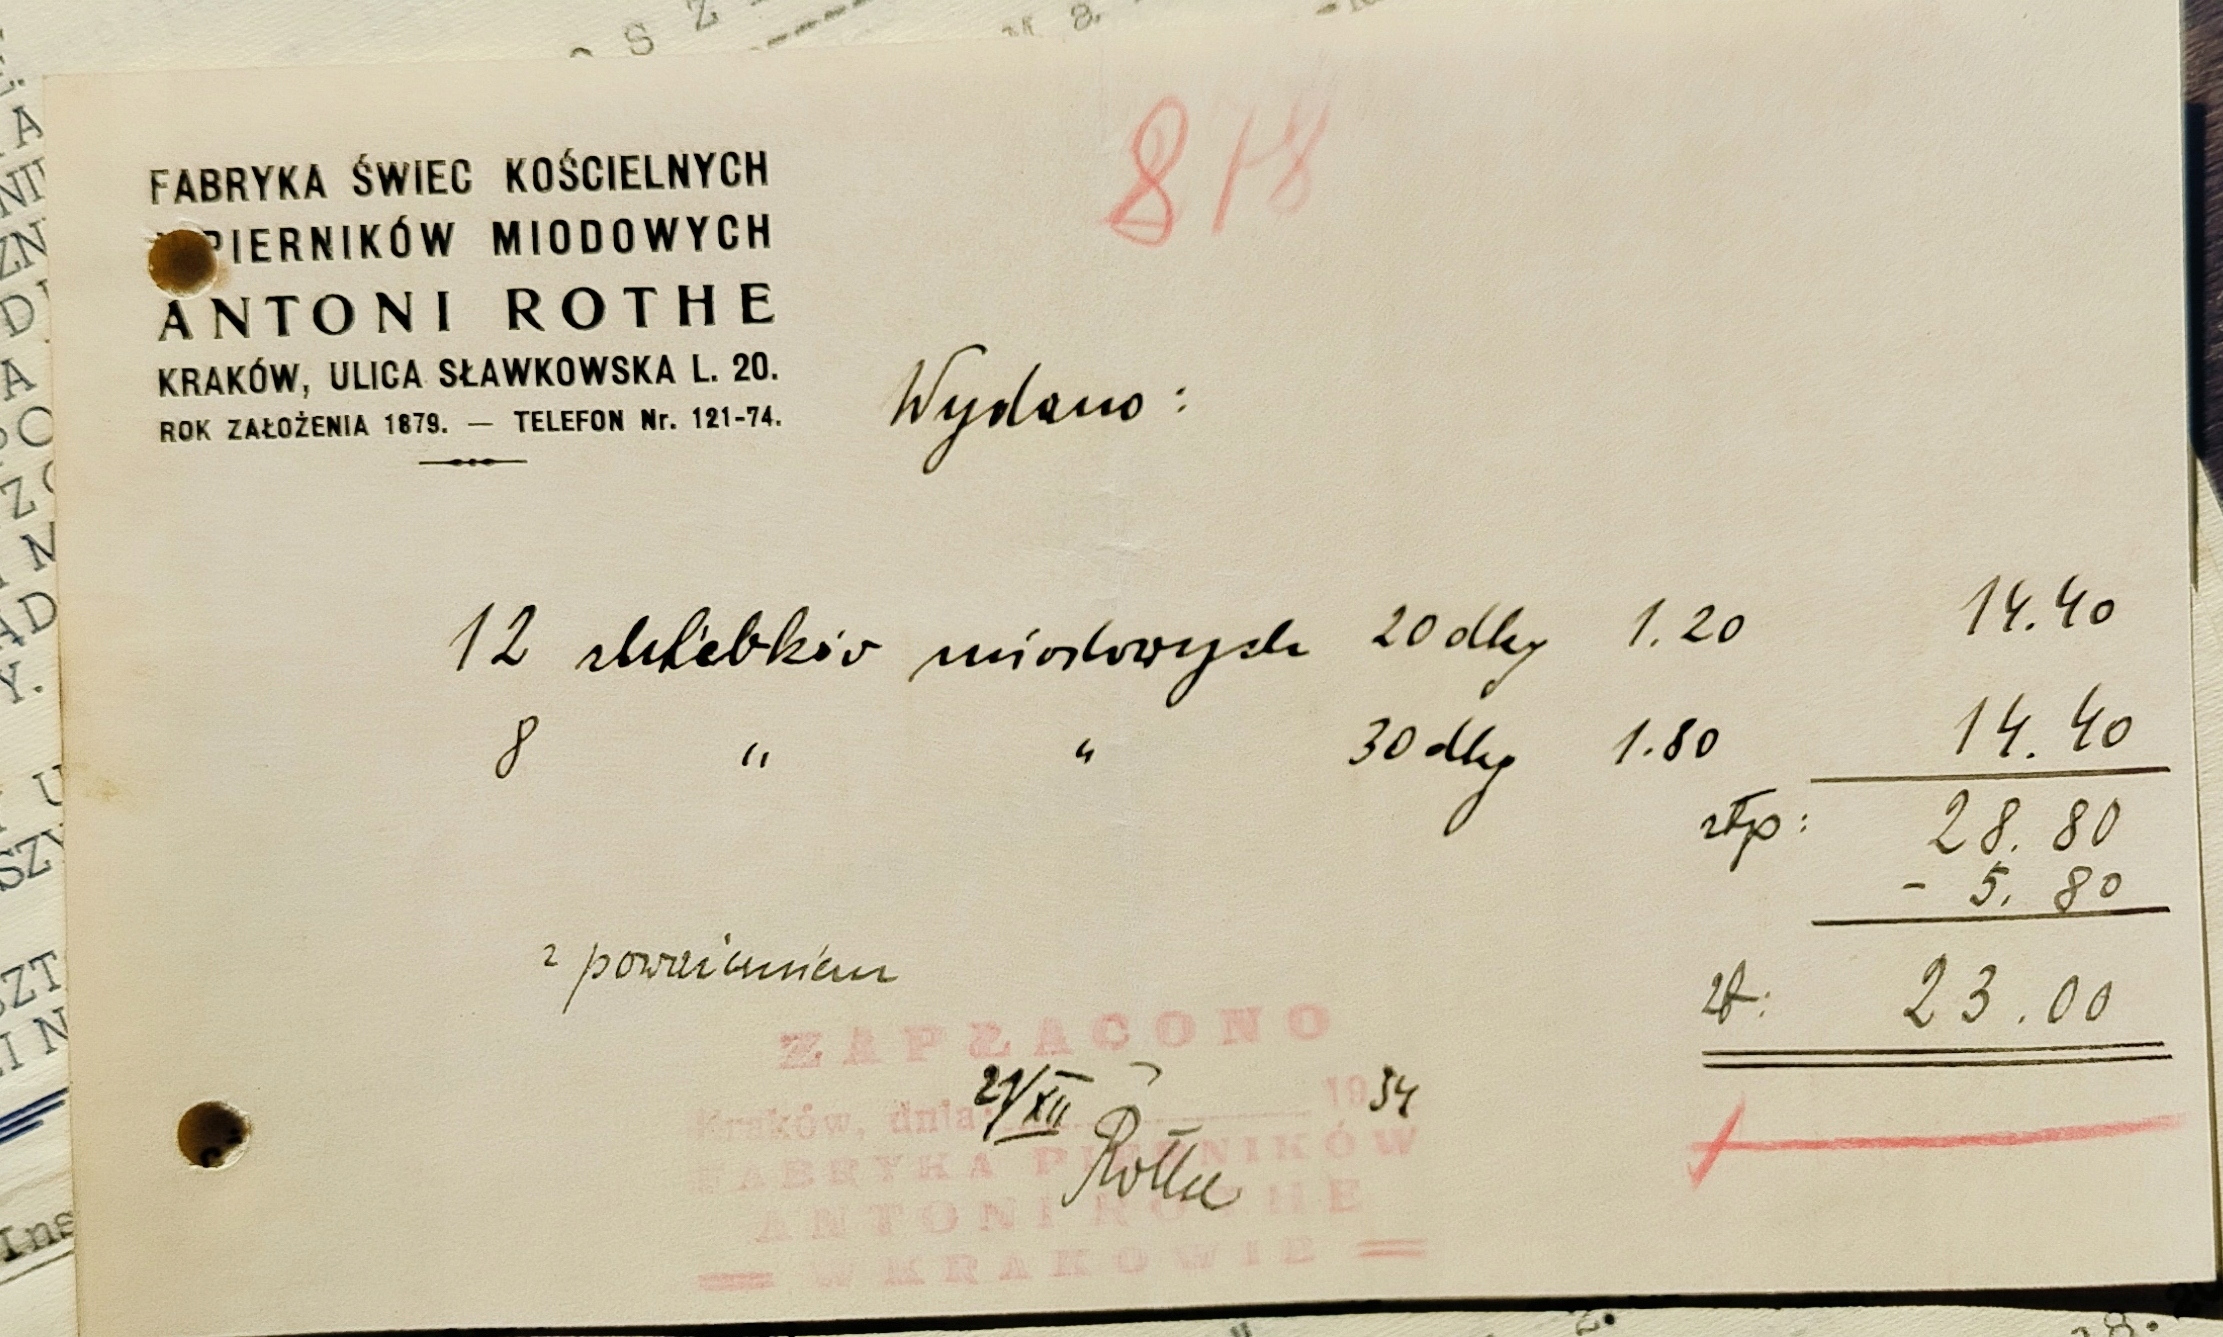 818
FABRYKA ŚWIEC KOŚCIELNYCH
PIERNIKÓW MIODOWYCH
ANTONI ROTHE
KRAKÓW, ULICA SŁAWKOWSKA L. 20.
ROK ZAŁOŻENIA 1879. — TELEFON Nr. 121-74.
Wydano:
12 chlebków miodowych 20 dkg 1.20 14.40
8 " " 30 dkg 1.80 14.40
złp: 28.80
- 5.80
z poważaniem
zł: 23.00
ZAPŁACONO
Kraków, dnia 21/XII 1934
Rothe
FABRYKA PIERNIKÓW
ANTONI ROTHE
W KRAKOWIE